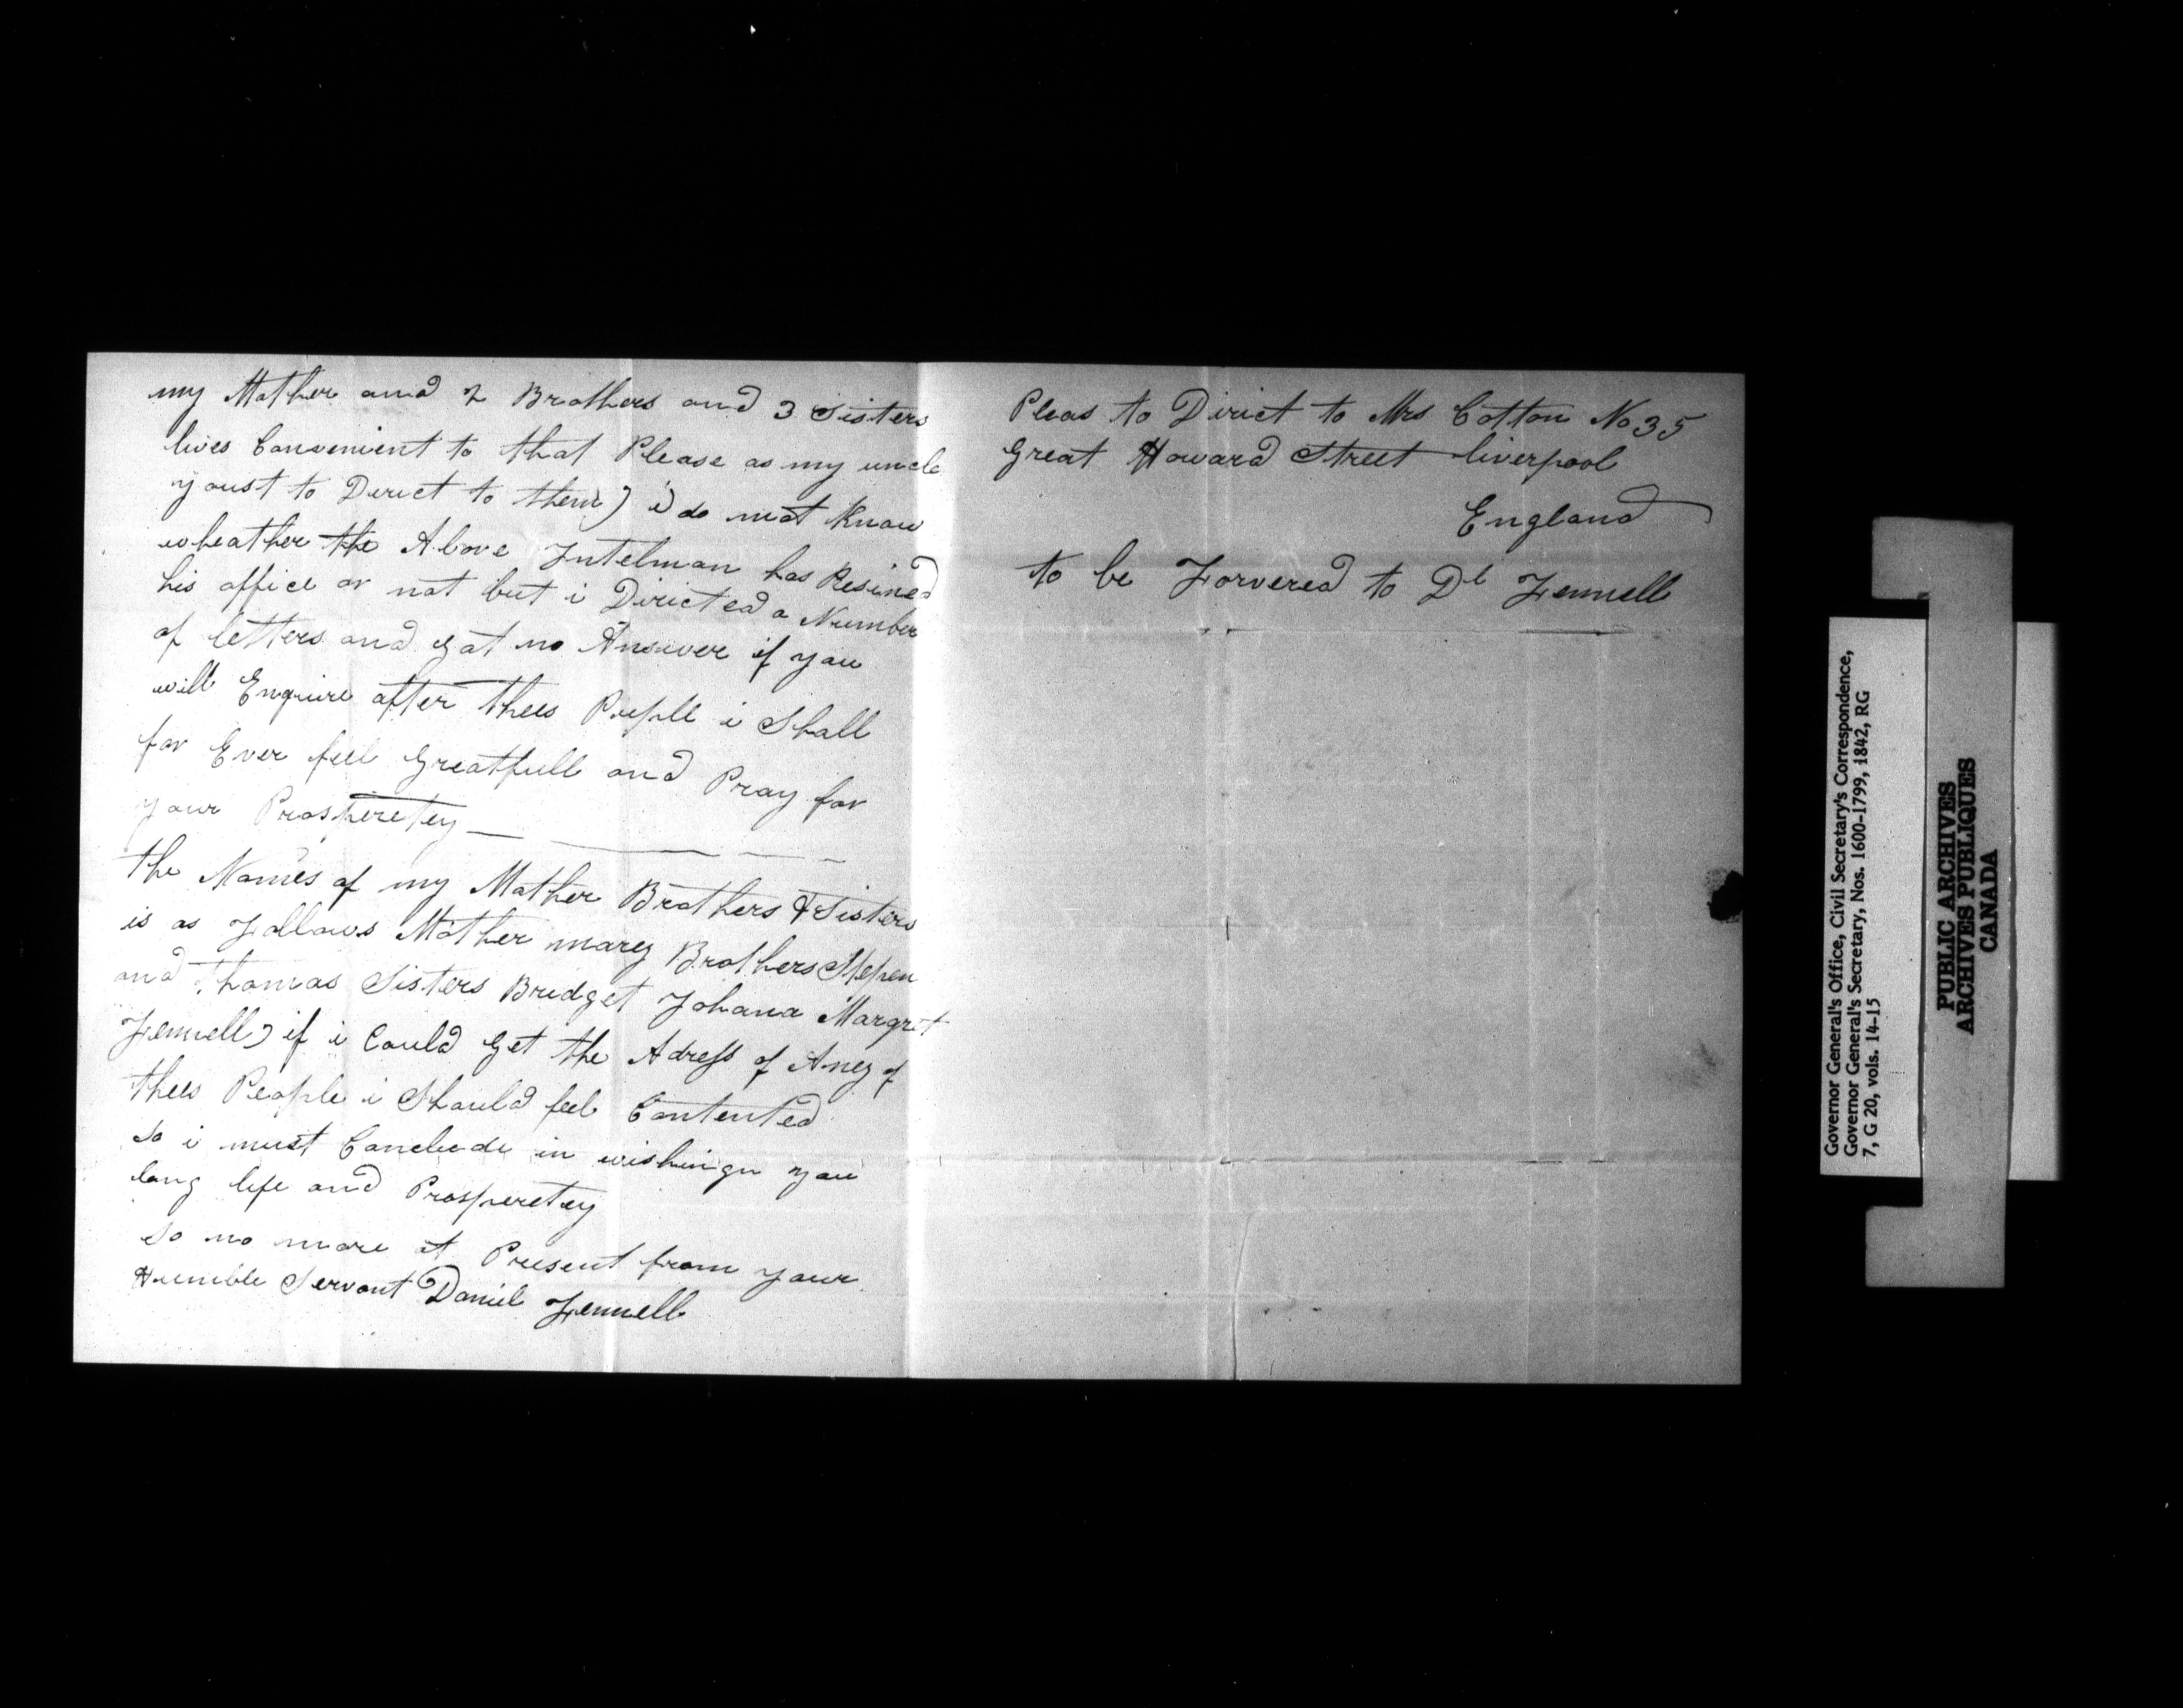 my Mother and 2 Brothers and 3 Sisters
lives Convenient to that Please as my uncle
youst to Derict to them) i do not Know
wheather the Above Jntelman has Resined
his office or not but i Diricted a Number
of letters and Gat no Answer if you
will Enquire after thees People i Shall
for Ever feel Greatfull and Pray for
your Prosperetey
the Names of my Mother Brothers & Sisters
is as Follows Mother marey Brothers Stepen
and Thomas Sisters Bridget Johana Margret
Fennell) if i Could Get the Adress of Aney of
thees People i Should feel Contented
so i must Conclude in wishingn you
long life and Prosperetey
so no more at Present from your
Humble Servant Daniel Fennell
Pleas to Dirict to Mrs Cotton No 35
Great Howard Street liverpool
England
to be Forvered to Dl Fennell
Governor General's Office, Civil Secretary's Correspondence,
Governor General's Secretary, Nos. 1600-1799, 1842, RG
7, G 20, vols. 14-15
PUBLIC ARCHIVES
ARCHIVES PUBLIQUES
CANADA